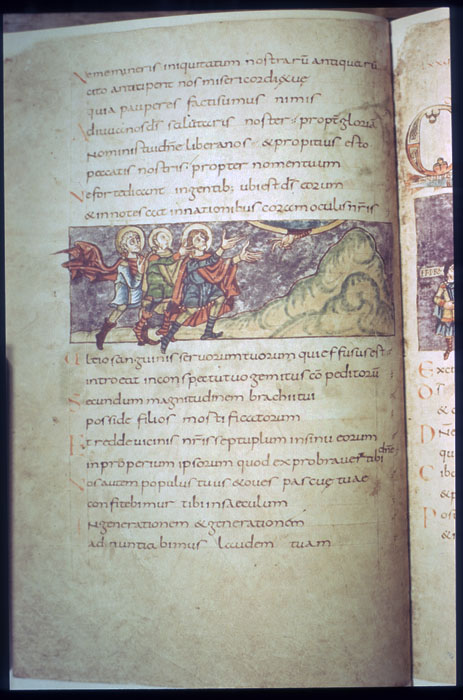 Nememineris iniquitatum nostrarū antiquarū
cito anticipent nos misericordiae tuę
quia pauperes facti sumus nimis
Adiuva nos dˉs salutaris noster & propt gloriā
nominis tui dnˉe libera nos & propitius esto
peccatis nostris propter nomen tuum
Neforte dicant in gentib; ubi est dˉs eorum
& innotescat in nationibus coram oculis nrˉis
Ultio sanguinis servorum tuorum qui effusus est
introeat in conspectu tuo gemitus cōpeditorū
Secundum magnitudinem brachii tui
posside filios mortificatorum
Et redde vicinis nrˉis septuplum in sinu eorum
improperium ipsorum quod exprobraverˉ tibi dnˉe
Nos autem populus tuus & oves pascuę tuae
confitebimur tibi in saeculum
In generationem & generationem
adnuntiabimus laudem tuam